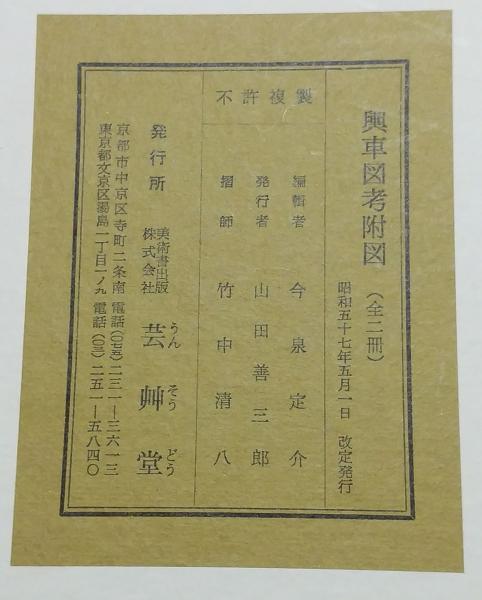 輿車図考附図（全二冊）
昭和五十七年五月一日　改定発行
不許複製
編輯者　今泉定介
発行者　山田善三郎
摺師　竹中清八
発行所　美術書出版株式会社　芸艸堂
うんそうどう
京都市中京区寺町二条南　電話（〇七五）二三一―三六一三
東京都文京区湯島一丁目一ノ九　電話（〇三）二五一―五八四〇